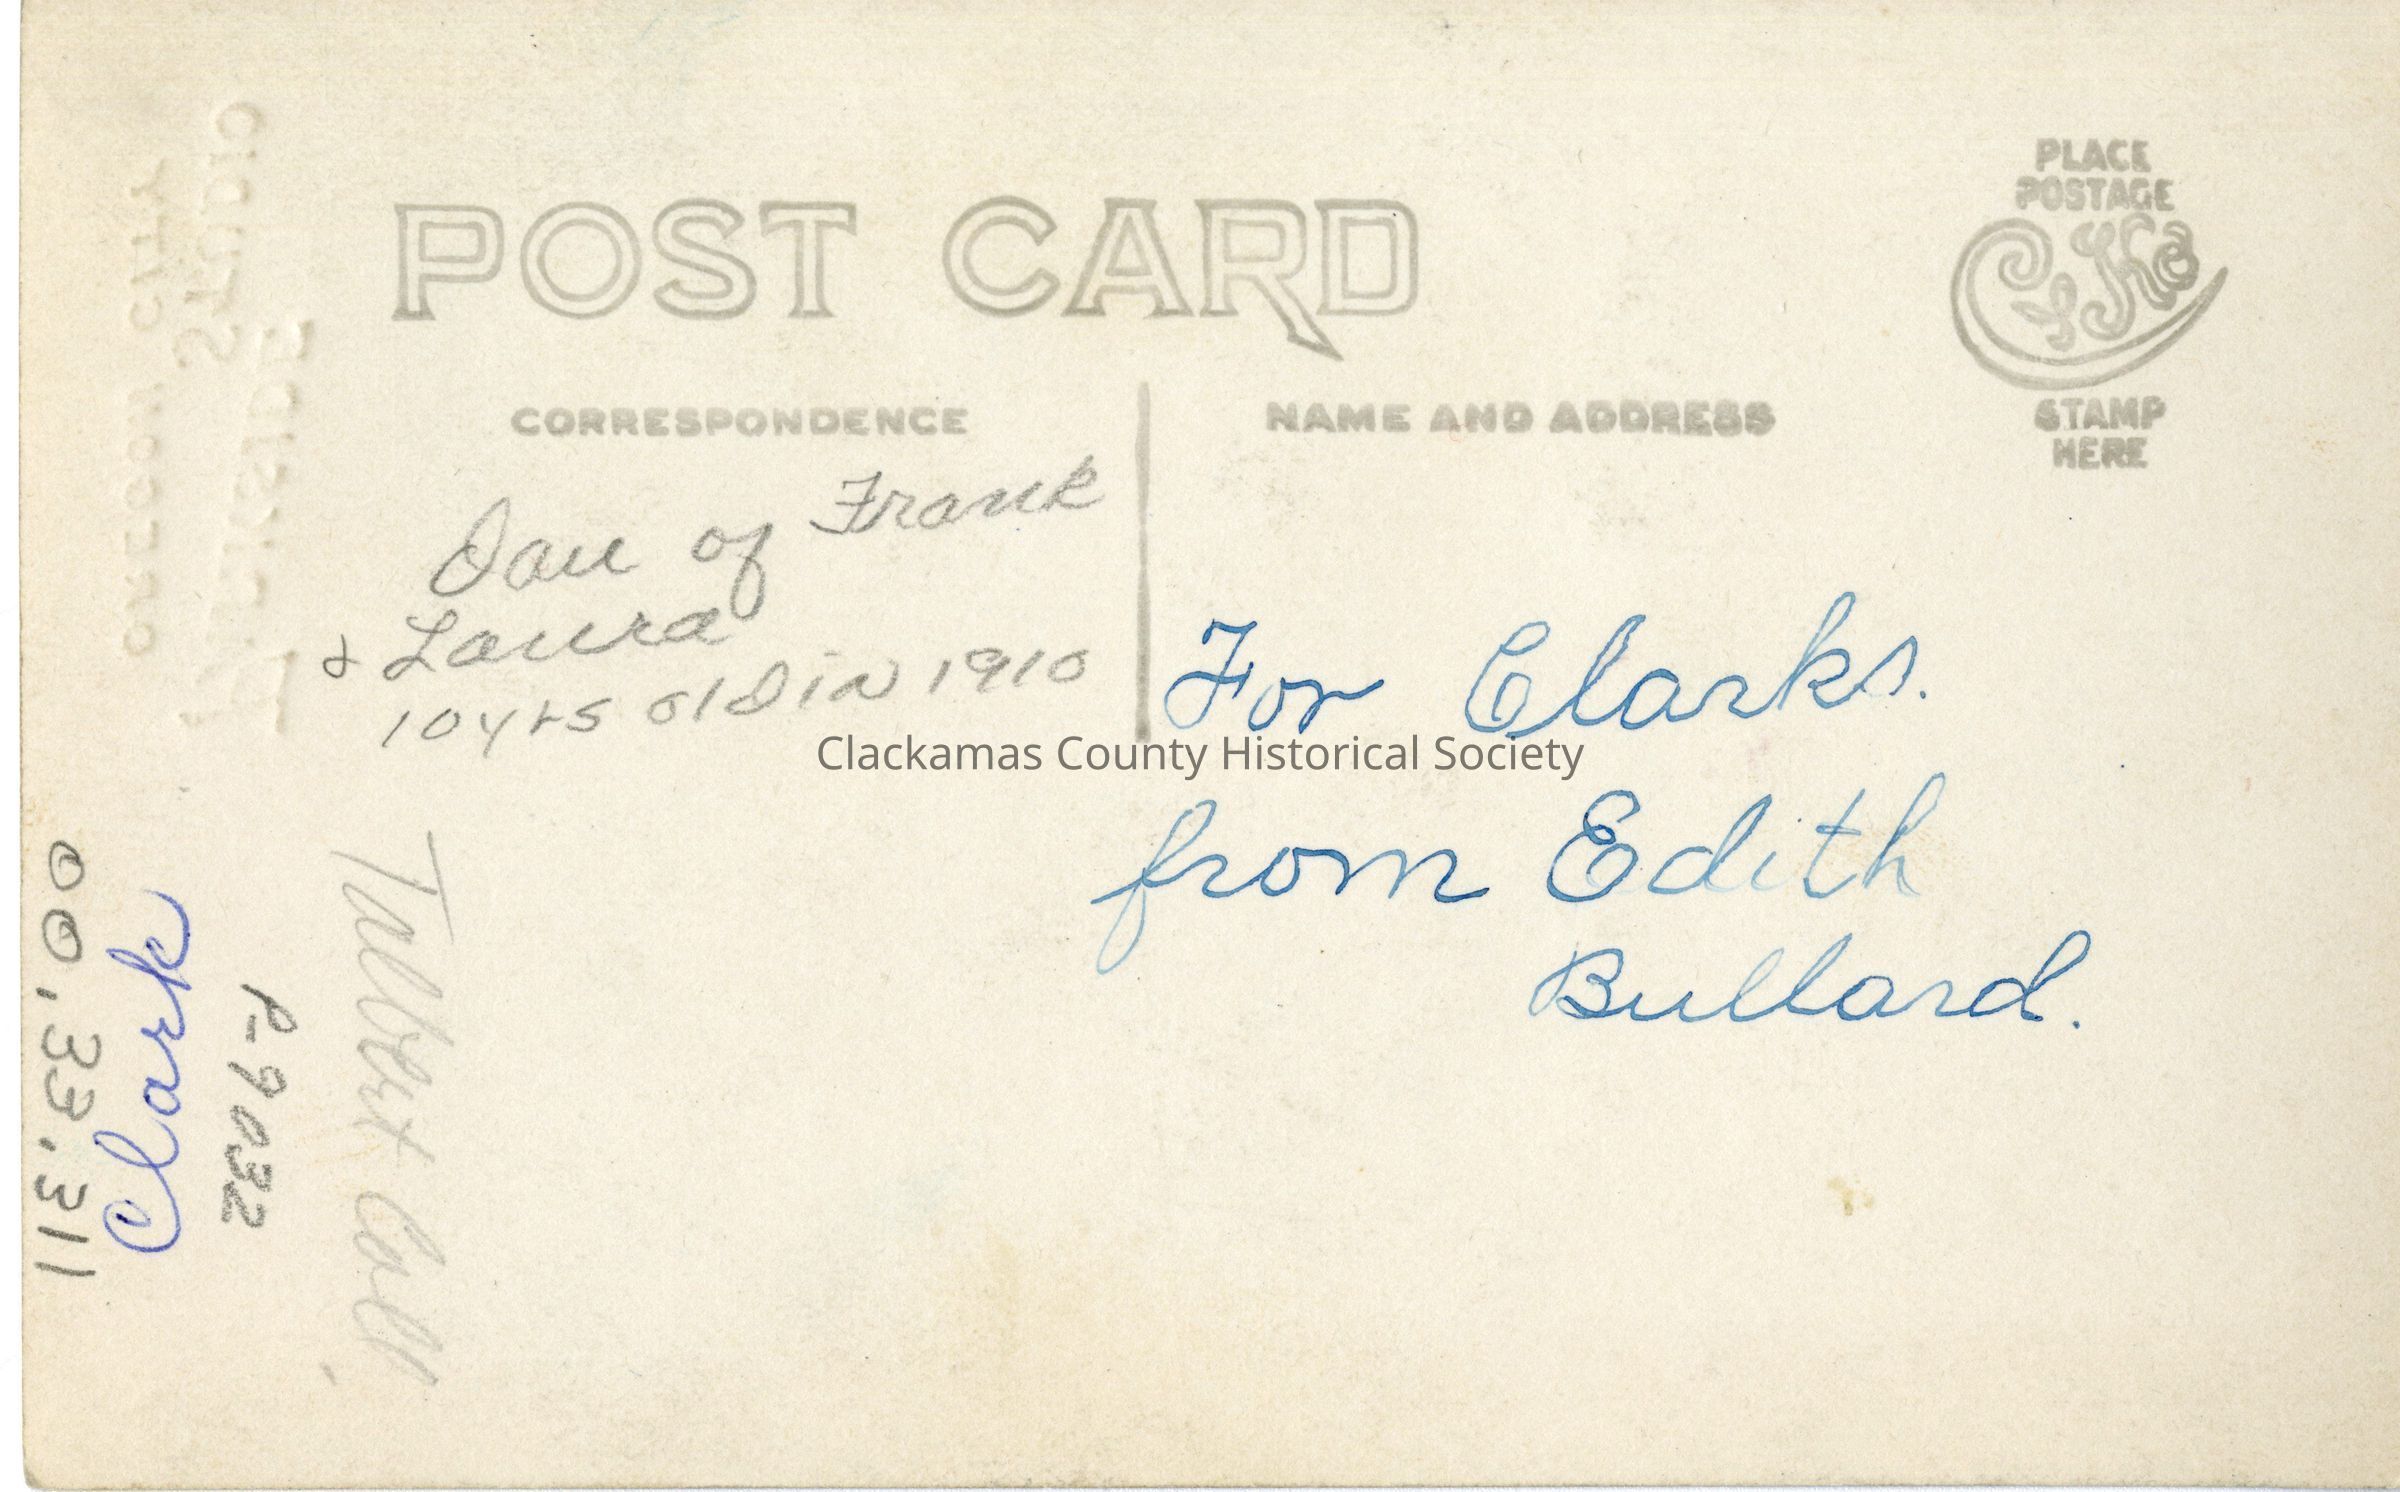 POST CARD
PLACE
POSTAGE
CYKO
STAMP
HERE
CORRESPONDENCE
NAME AND ADDRESS
Dau of Frank
& Laura
10 yrs old in 1910
For Clarks.
from Edith
Bullard.
Clackamas County Historical Society
Talbert Coll.
P-9032
Clark
00.33.311
STUDIO
OREGON CITY